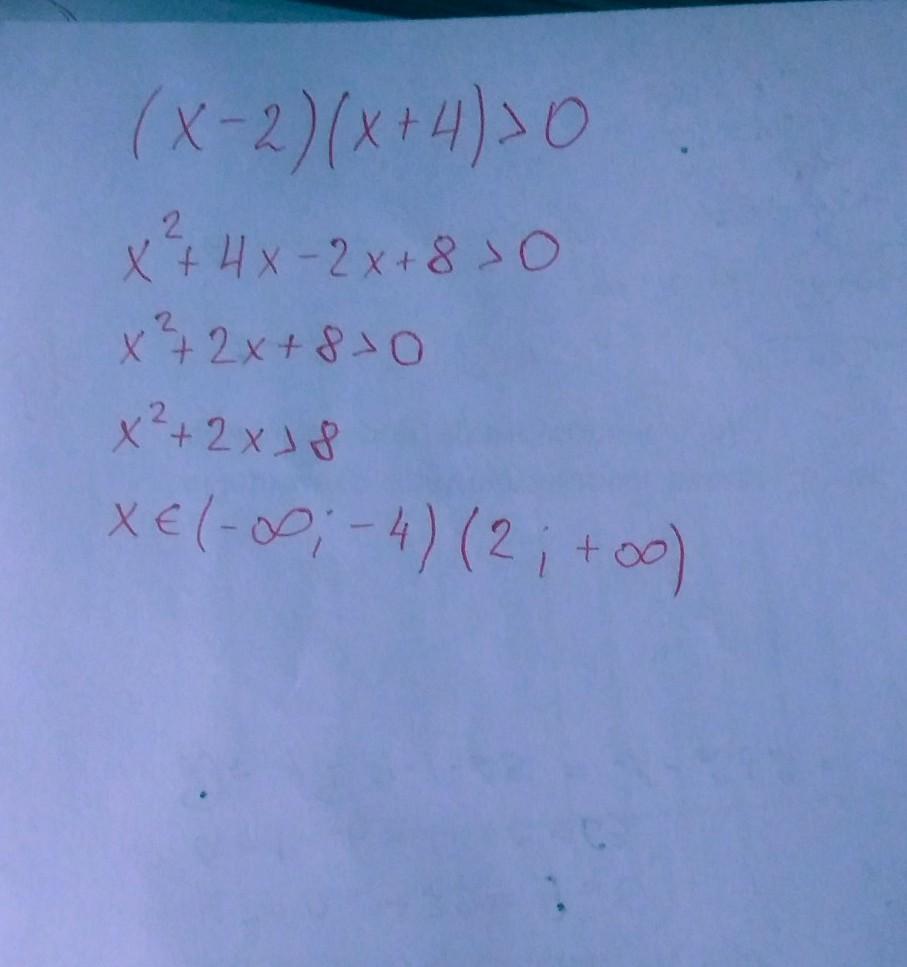 (x-2)(x+4)>0
x²+4x-2x+8>0
x²+2x+8>0
x²+2x>8
x∈(-∞;-4)(2;+∞)